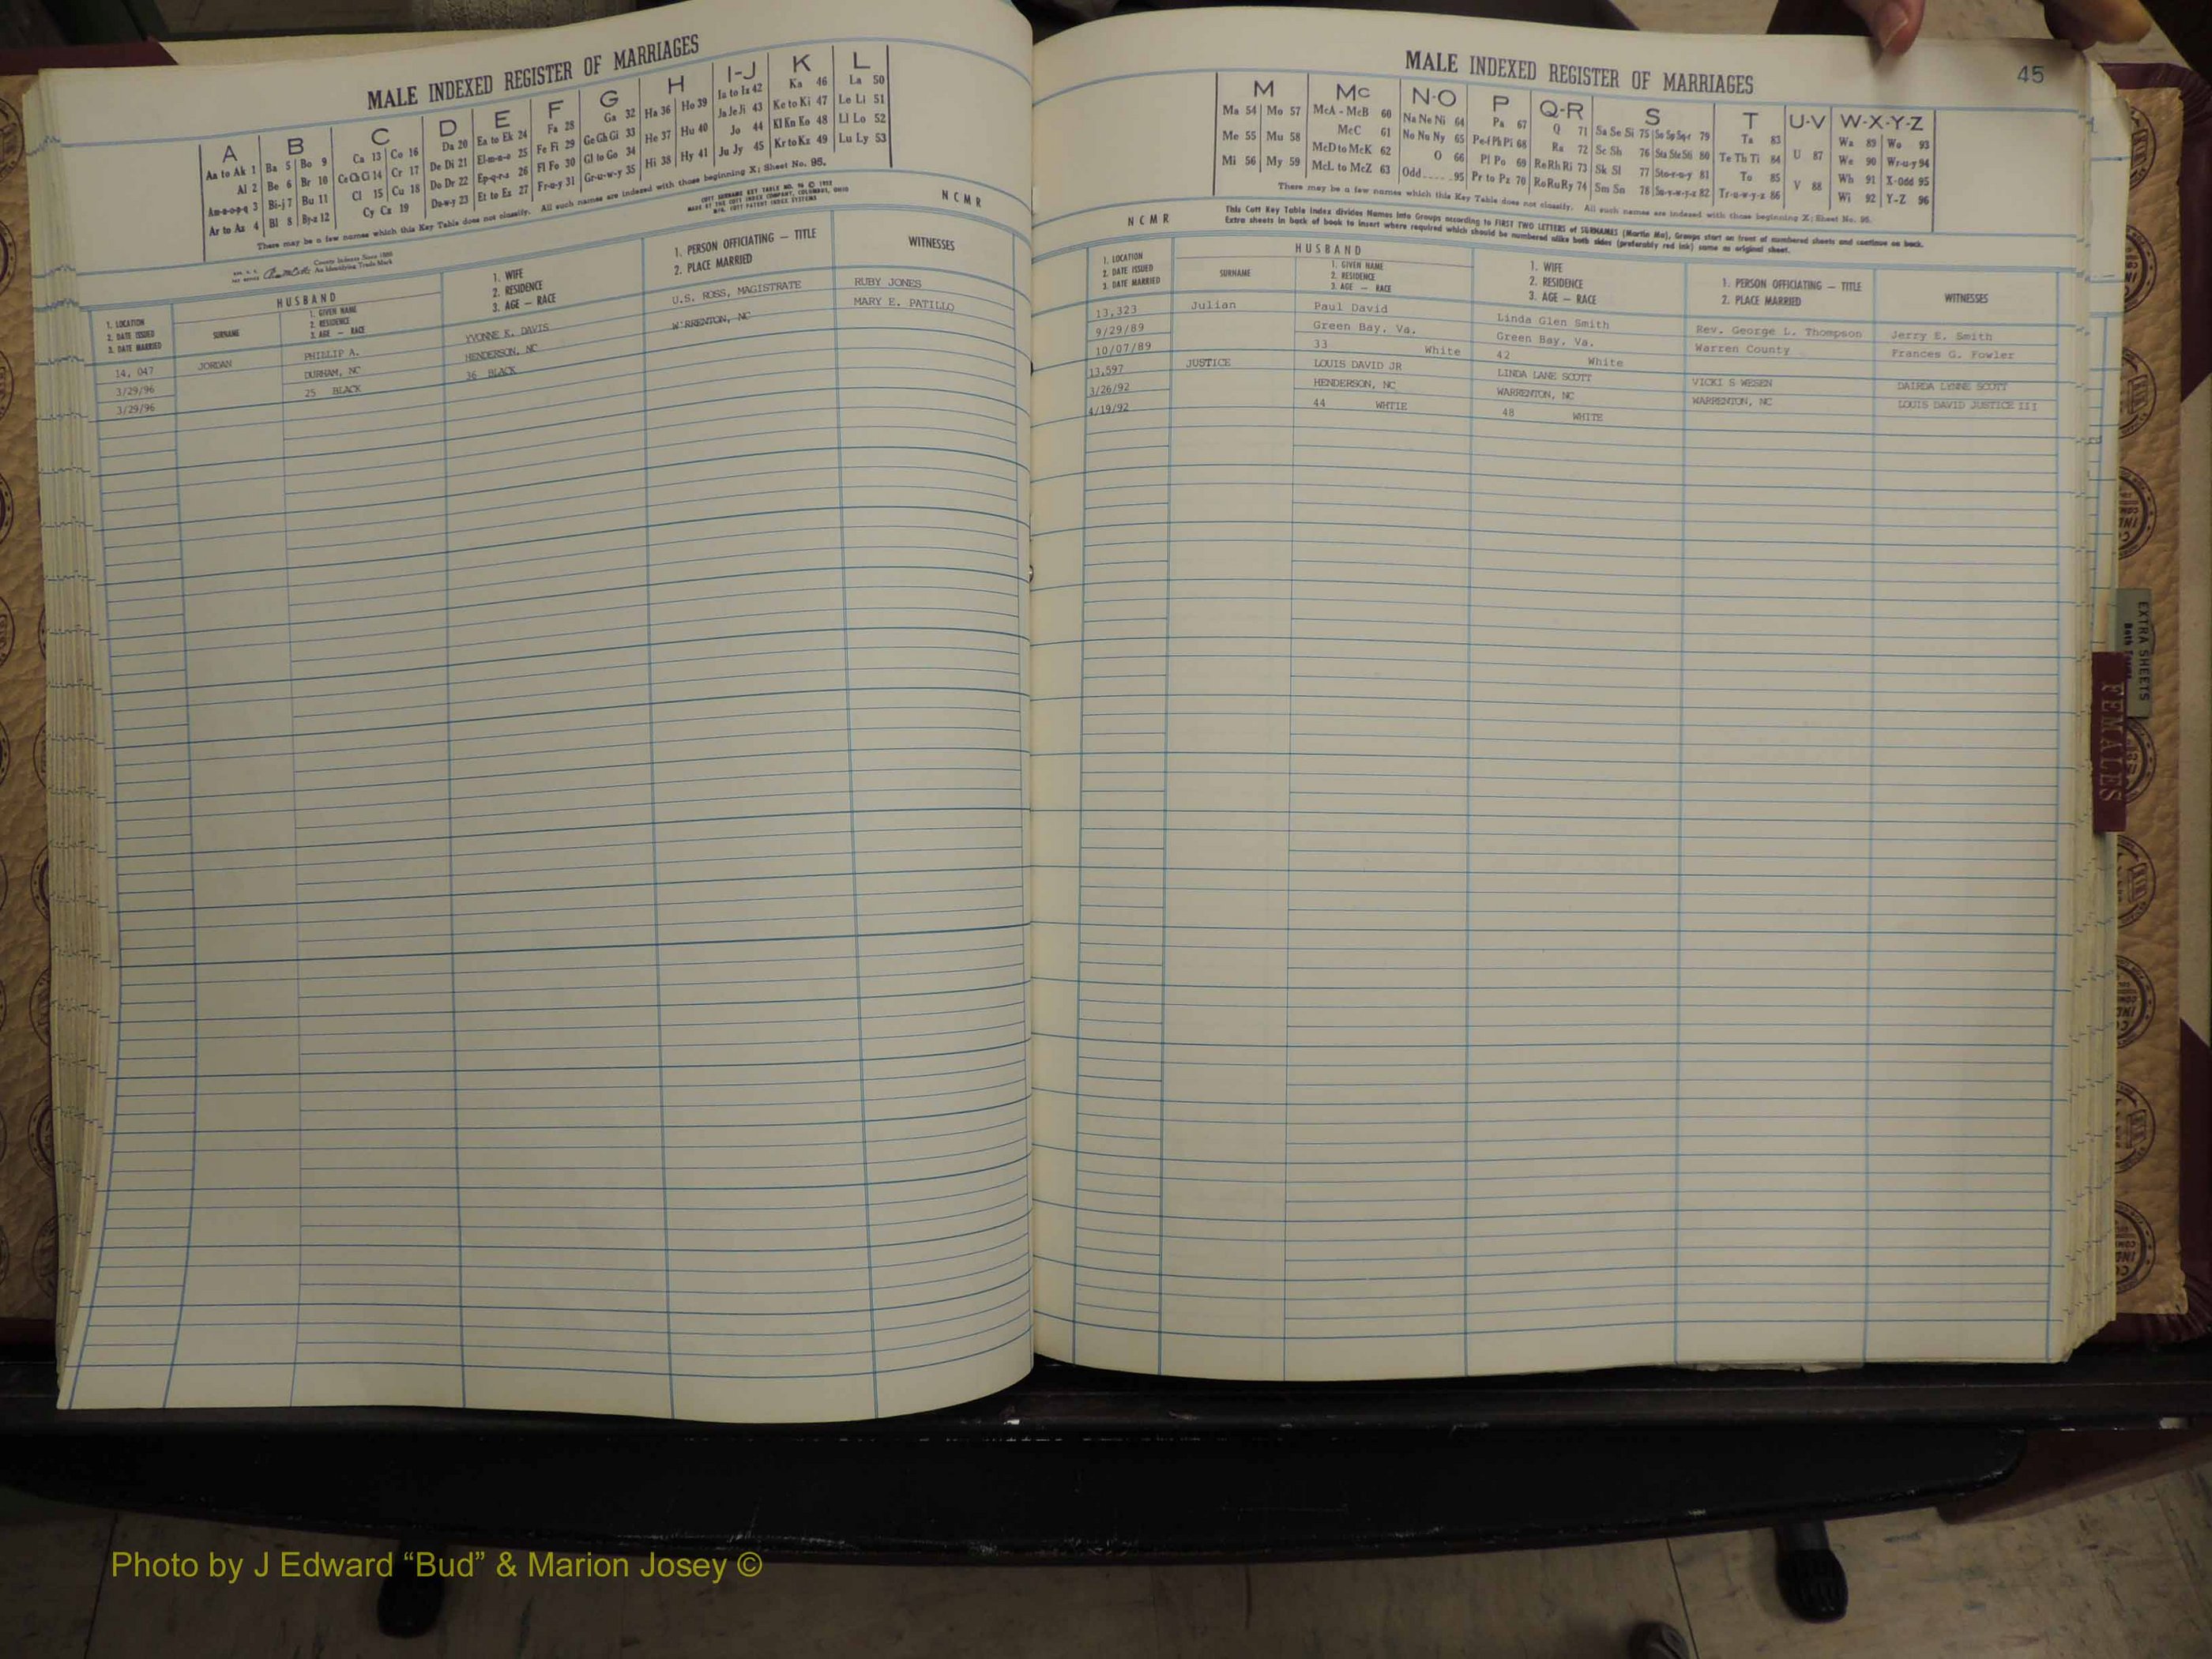 MALE INDEXED REGISTER OF MARRIAGES
A B C D E F G H I-J K L
Aa to Ak 1 Ba 5 Bo 9 Ca 13 Co 16 Da 20 Ea to Ek 24 Fa 28 Ga 32 Ha 36 Ho 39 Ia to Iz 42 Ka 46 La 50
Al 2 Be 6 Br 10 Ce Ch Ci 14 Cr 17 De Di 21 El-m-n-o 25 Fe Fi 29 Ge Gh Gi 33 He 37 Hu 40 Ja Je Ji 43 Ke to Ki 47 Le Li 51
Am-n-o-p-q 3 Bi-j 7 Bu 11 Cl 15 Cu 18 Do Dr 22 Ep-q-r-s 26 Fl Fo 30 Gl to Go 34 Hi 38 Hy 41 Jo 44 Kl Kn Ko 48 Ll Lo 52
Ar to Az 4 Bl 8 By-z 12 Cy Cz 19 Du-w-y 23 Et to Ez 27 Fr-u-y 31 Gr-u-w-y 35 Ju Jy 45 Kr to Kz 49 Lu Ly 53
There may be a few names which this Key Table does not classify. All such names are indexed with those beginning X; Sheet No. 96.
County Indexes Since 1888
An Identifying Trade Mark
COTT SURNAME KEY TABLE NO. 96 © 1952
MADE BY THE COTT INDEX COMPANY, COLUMBUS, OHIO
MFG. COTT PATENT INDEX SYSTEMS
N C M R
1. LOCATION
2. DATE ISSUED
3. DATE MARRIED
HUSBAND
SURNAME
1. GIVEN NAME
2. RESIDENCE
3. AGE — RACE
1. WIFE
2. RESIDENCE
3. AGE — RACE
1. PERSON OFFICIATING — TITLE
2. PLACE MARRIED
WITNESSES
14, 047 JORDAN PHILLIP A. YVONNE K. DAVIS U.S. ROSS, MAGISTRATE RUBY JONES
3/29/96 DURHAM, NC HENDERSON, NC W'RRENTON, NC MARY E. PATILLO
3/29/96 25 BLACK 36 BLACK
45
MALE INDEXED REGISTER OF MARRIAGES
M Mc N-O P Q-R S T U-V W-X-Y-Z
Ma 54 Mo 57 McA - McB 60 Na Ne Ni 64 Pa 67 Q 71 Sa Se Si 75 So Sp Sq-r 79 Ta 83 Wa 89 Wo 93
Me 55 Mu 58 McC 61 No Nu Ny 65 Pe-f Ph Pi 68 Ra 72 Sc Sh 76 Sta Ste Sti 80 Te Th Ti 84 U 87 We 90 Wr-u-y 94
McD to McK 62 O 66 Pl Po 69 Re Rh Ri 73 Sk Sl 77 Sto-r-u-y 81 To 85 Wh 91 X-Odd 95
Mi 56 My 59 McL to McZ 63 Odd 95 Pr to Pz 70 Ro Ru Ry 74 Sm Sn 78 Su-v-w-y-z 82 Tr-u-w-y-z 86 V 88 Wi 92 Y-Z 96
There may be a few names which this Key Table does not classify. All such names are indexed with those beginning X; Sheet No. 95.
N C M R
This Cott Key Table Index divides Names into Groups according to FIRST TWO LETTERS of SURNAMES (Martin Ma), Groups start on front of numbered sheets and continue on back.
Extra sheets in back of book to insert where required which should be numbered alike both sides (preferably red ink) same as original sheet.
1. LOCATION
2. DATE ISSUED
3. DATE MARRIED
HUSBAND
SURNAME
1. GIVEN NAME
2. RESIDENCE
3. AGE — RACE
1. WIFE
2. RESIDENCE
3. AGE — RACE
1. PERSON OFFICIATING — TITLE
2. PLACE MARRIED
WITNESSES
13,323 Julian Paul David Linda Glen Smith Rev. George L. Thompson Jerry E. Smith
9/29/89 Green Bay, Va. Green Bay, Va. Warren County Frances G. Fowler
10/07/89 33 White 42 White
13,597 JUSTICE LOUIS DAVID JR LINDA LANE SCOTT VICKI S WESEN DAIRDA LYNNE SCOTT
3/26/92 HENDERSON, NC WARRENTON, NC WARRENTON, NC LOUIS DAVID JUSTICE III
4/19/92 44 WHTIE 48 WHITE
EXTRA SHEETS
FEMALES
Photo by J Edward “Bud” & Marion Josey ©